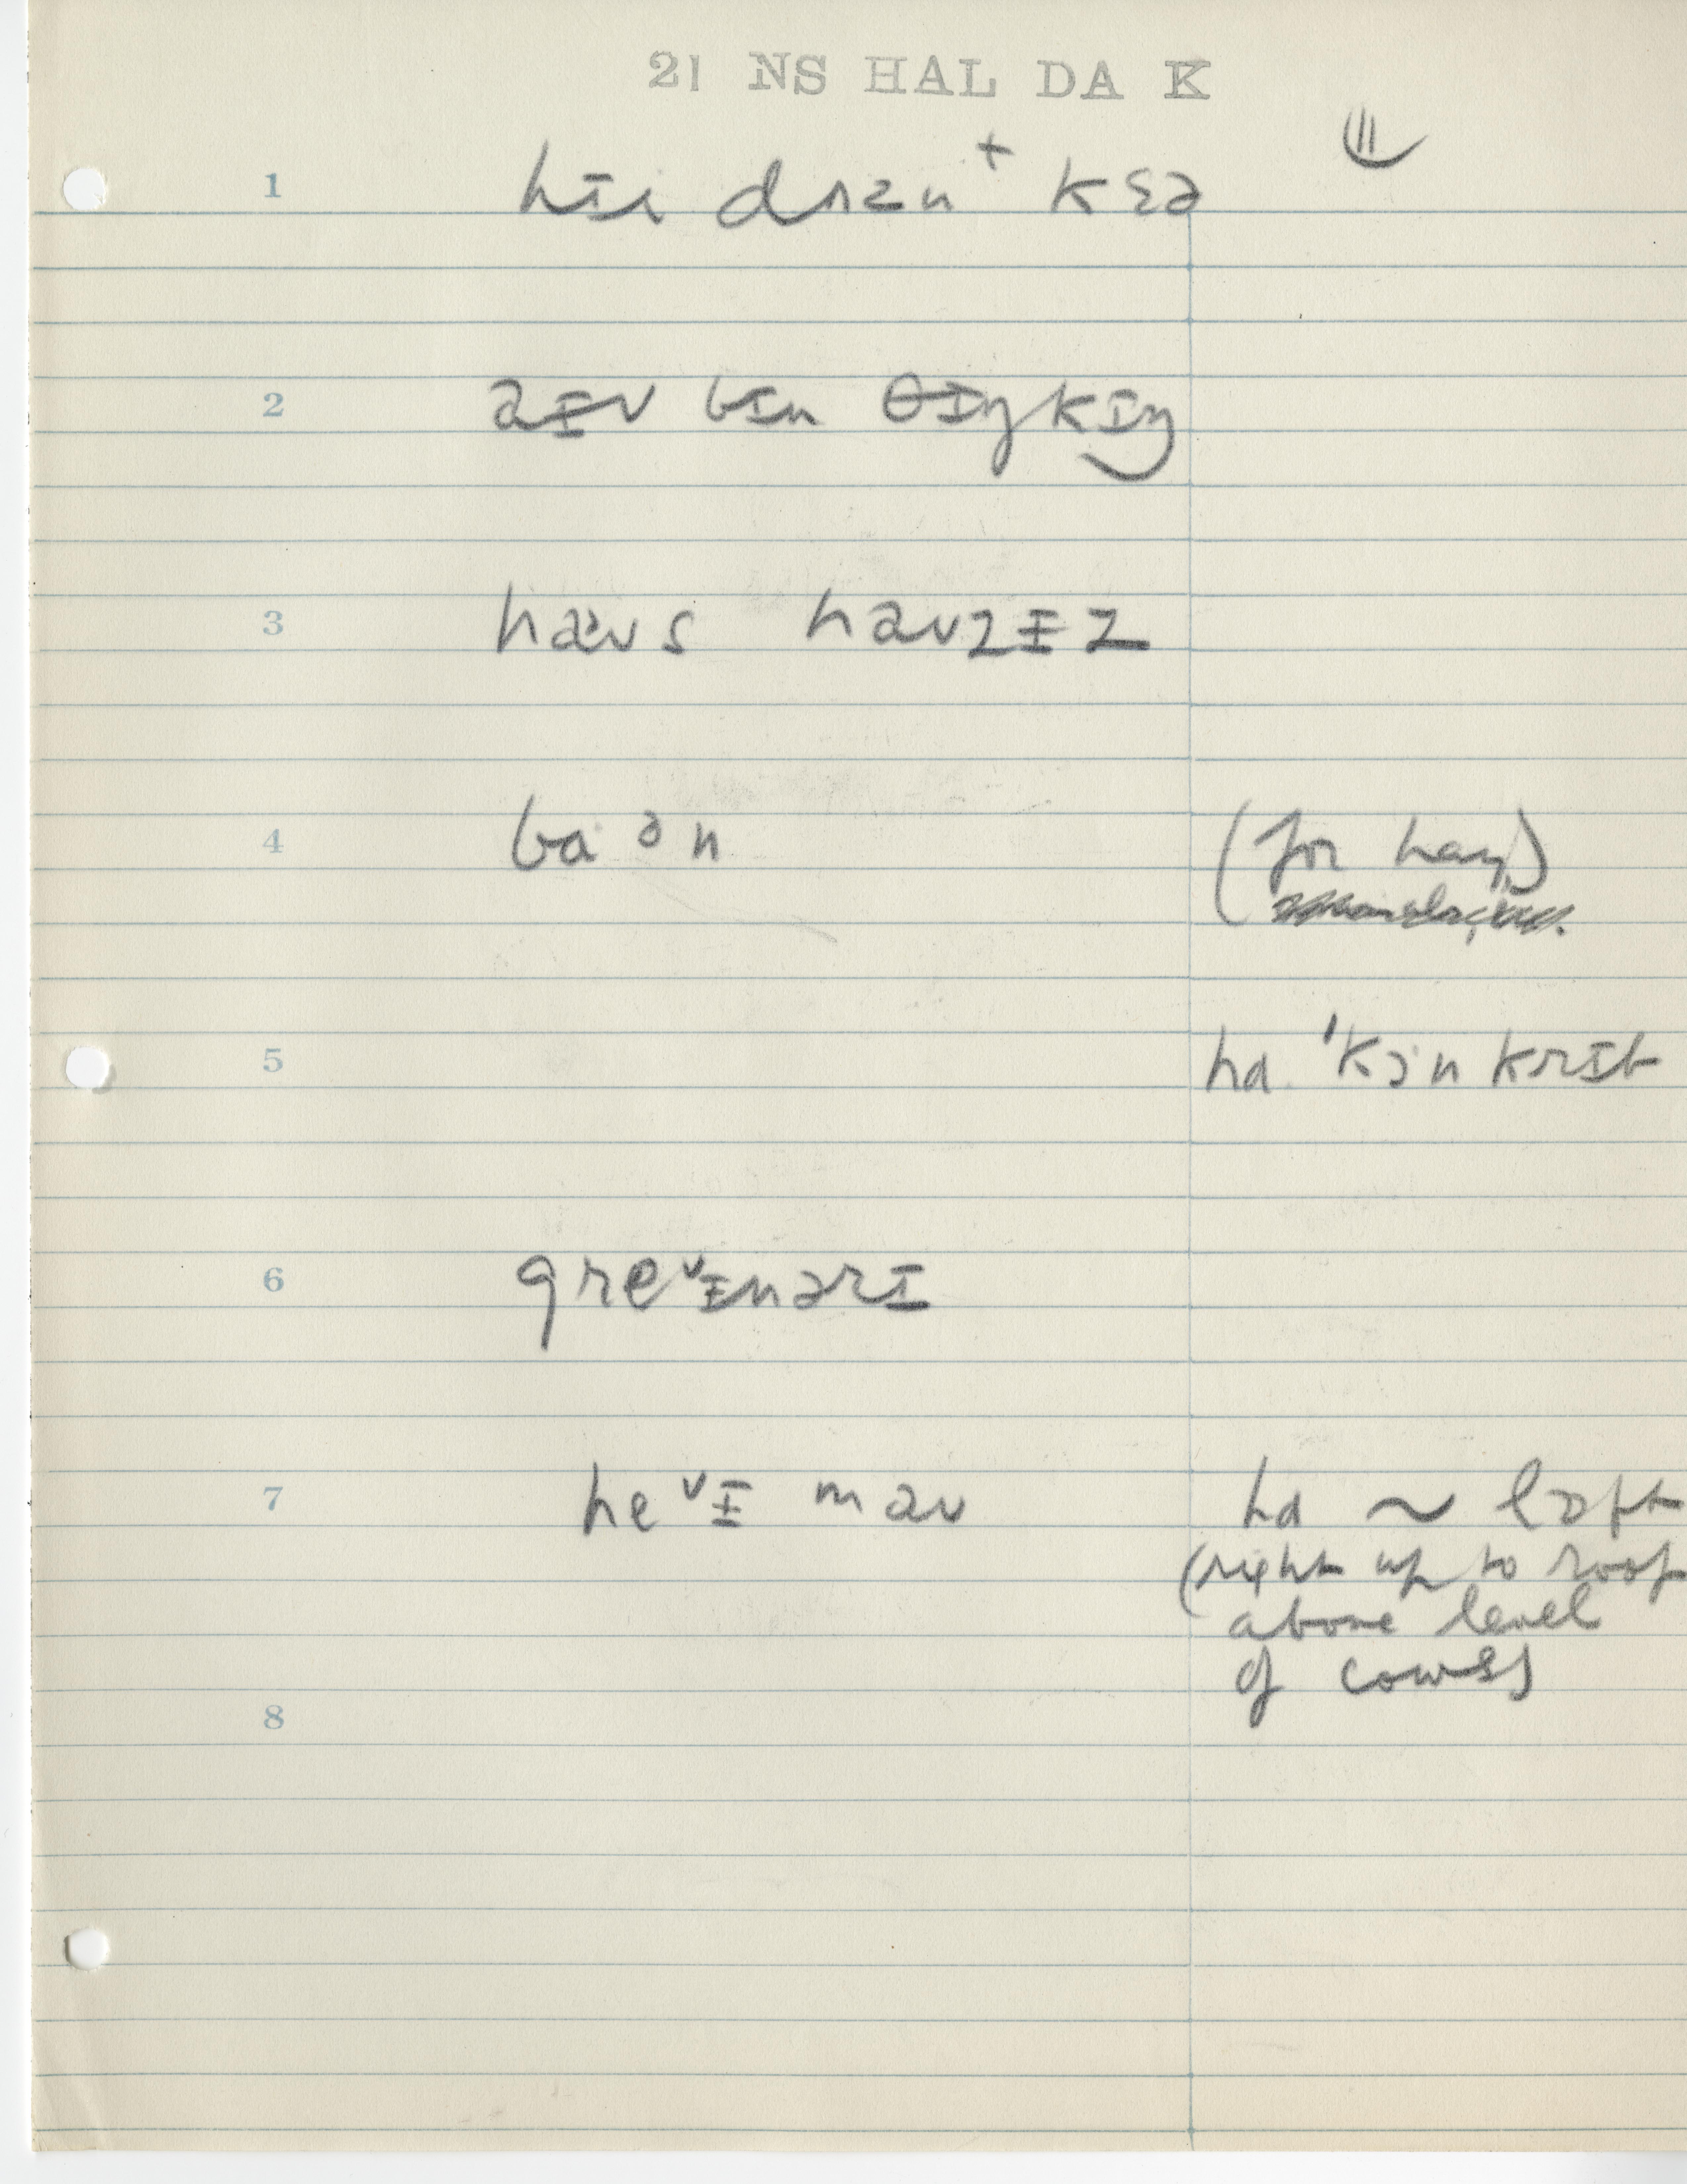 21 NS HAL DA K
1 hɪi dʌzn⁺ kɛə
2 aɪv bɪn θɪŋkɪŋ
3 haʊs haʊzɪz
4 baən (for hay)
5 ha ˈkɔn krɪb
6 greᵛɪnərɪ
7 heᵛɪ maʊ ha ~ lɔft
(right up to roof
above level
of cows)
8